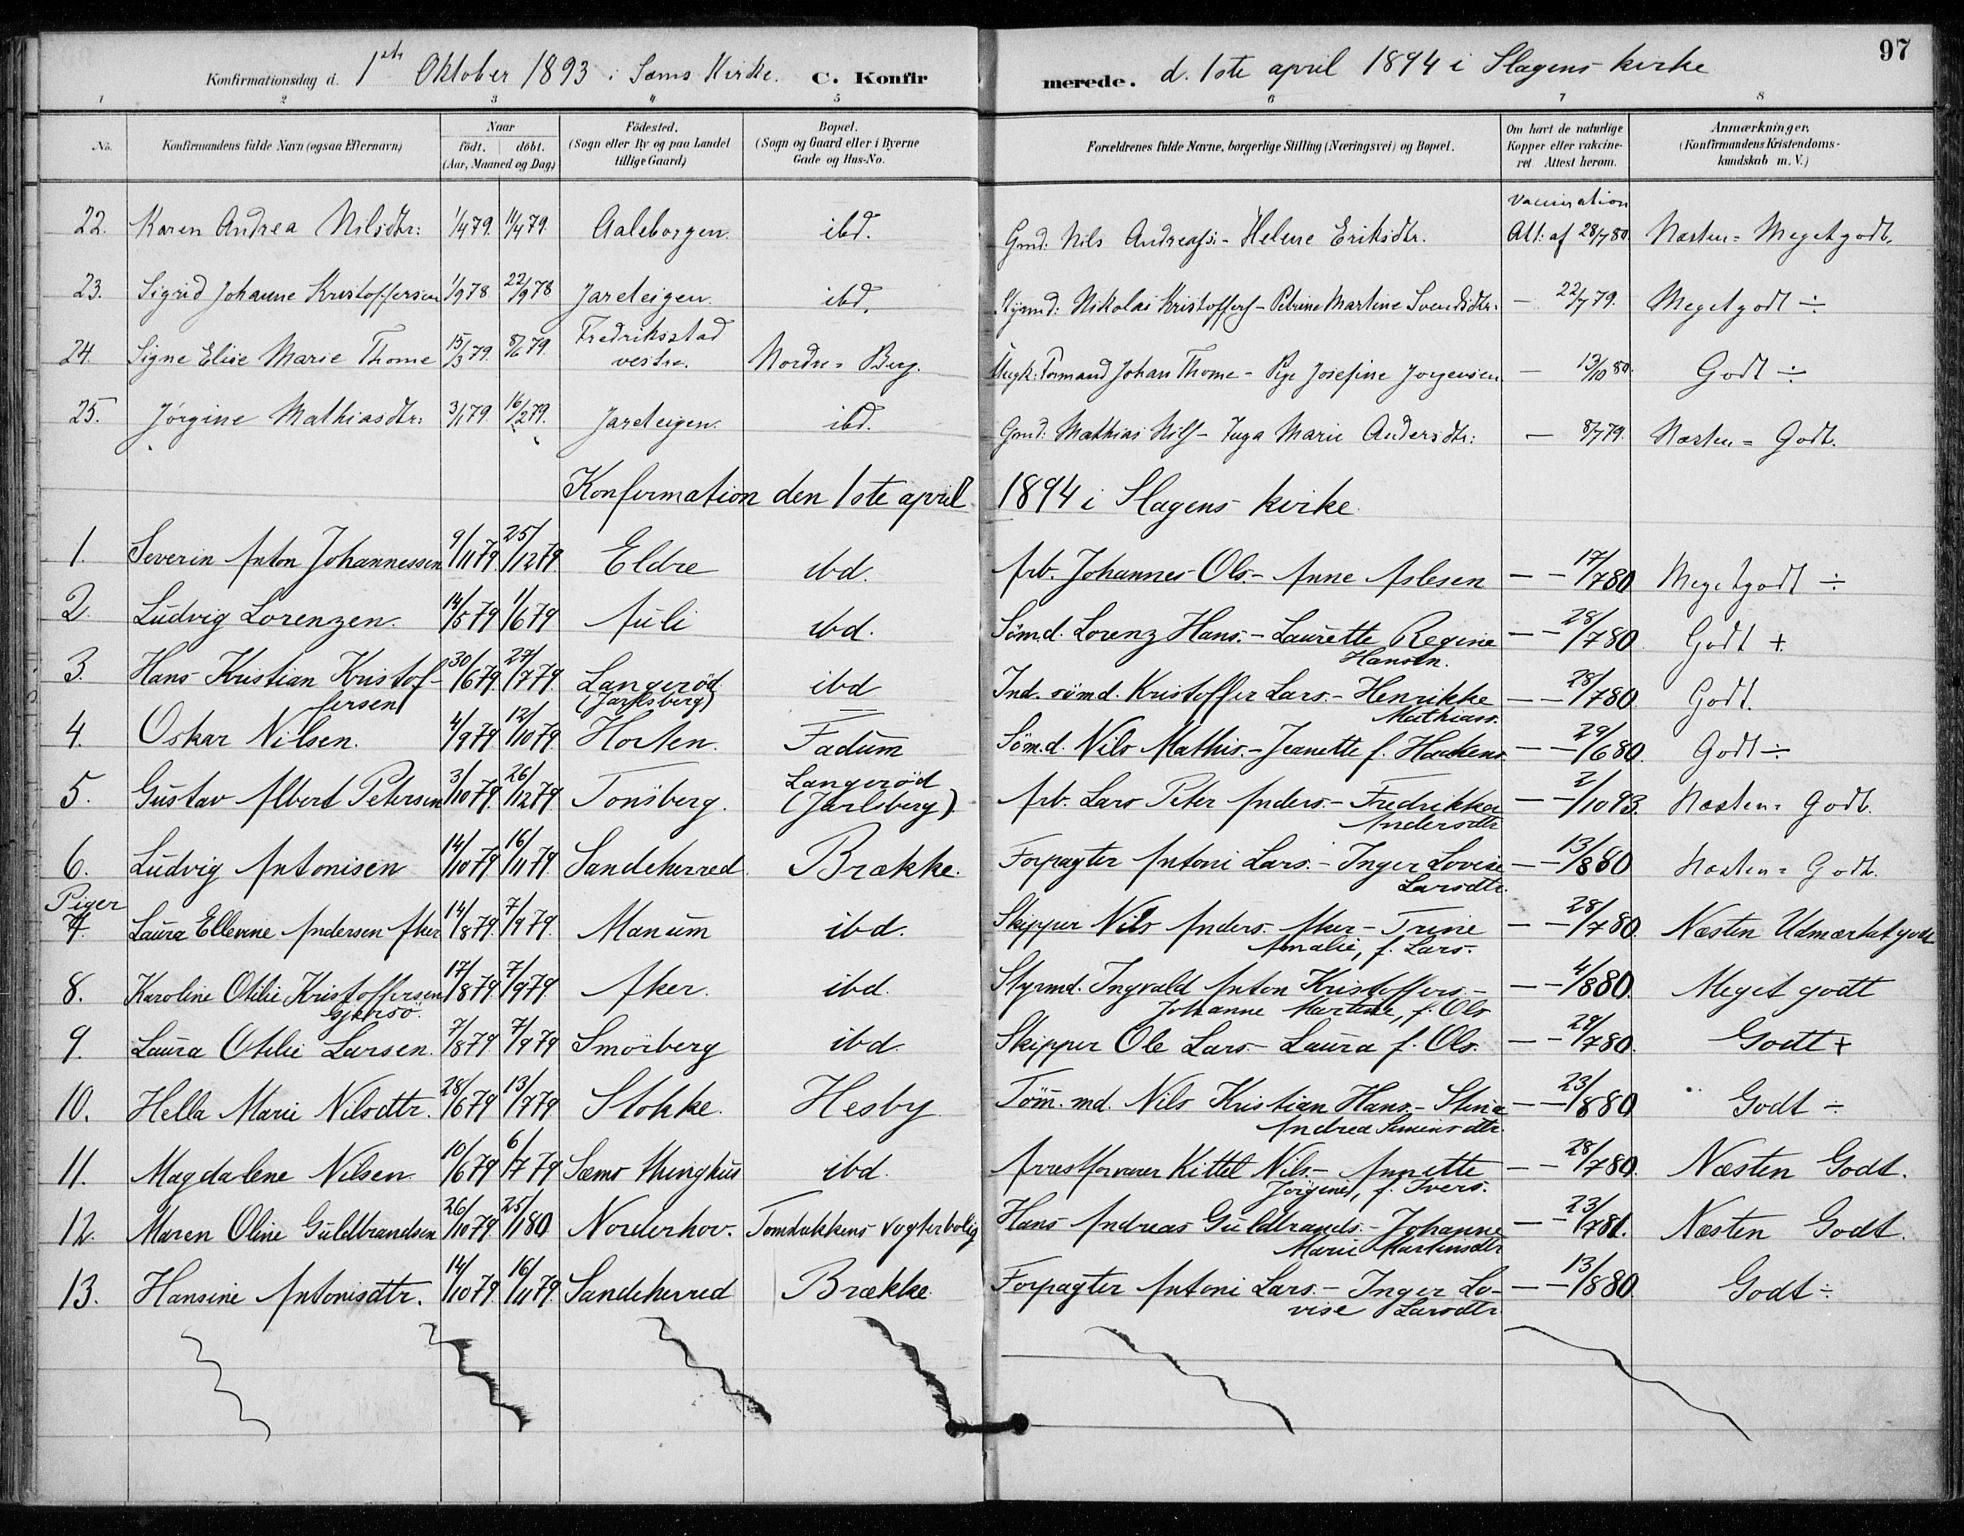 97
Konfirmationsdag d. 1ste Oktober 1893 i Sæms Kirke. C. Konfirmerede. d. 1ste april 1894 i Slagens kirke
1 2 3 4 5 6 7 8
No. Konfirmandens fulde Navn (ogsaa Efternavn) Naar født. døbt. (Aar, Maaned og Dag) Fødested. (Sogn eller By og paa Landet tillige Gaard) Bopæl. (Sogn og Gaard eller i Byerne Gade og Hus-No. Forældrenes fulde Navne, borgerlige Stilling (Næringsvei) og Bopæl. Om havt de naturlige Kopper eller vakcineret. Attest herom. Anmærkninger. (Konfirmandens Kristendomskundskab m. V.)
Vaccination
22. Karen Andrea Nilsdtr: 1/4 79. 14/4 79. Aaleborgen. ibd. Gmd: Nils Andreass. - Helene Eriksdtr. Att: af 28/7 80 Næsten = Megetgodt.
23. Sigrid Johanne Kristoffersen 1/9 78. 22/9 78 Jareteigen. ibd. Styrmd: Nikolai Kristoffers - Petrine Martine Svendsdtr. — 22/7 79. Megetgodt ÷
24. Signe Elise Marie Thome 15/3 79. 8/6 79. Fredriksstad vestre. Nordre = Berg. Ungk: Formand Johan Thome - Pige Josefine Jorgensen — 13/10 80. Godt ÷
25. Jørgine Mathiasdtr: 3/1 79. 16/2 79. Jareteigen. ibd. Gmd: Mathias Nils - Inga Marie Andersdtr: — 8/7 79. Næsten = Godt.
Konfirmation den 1ste april 1894 i Slagens kirke.
1. Severin Anton Johannessen 9/11 79. 25/12 79 Eldre ibd. Arb. Johannes Ols. - Anne Aslesen — — 17/7 80 Megetgodt ÷
2. Ludvig Lorenzen. 14/5 79 1/6 79 Auli ibd. Sømd. Lorenz Hans. - Laurette Regine Hansen. — — 28/7 80 Godt +
3. Hans Kristian Kristoffersen 30/6 79 27/7 79. Langerød (Jarlsberg) ibd Ind. sømd. Kristoffer Lars. - Henrikke Mathiass. — — 28/7 80 Godt.
4. Oskar Nilsen. 4/9 79 12/10 79 Horten. Fadum Sømd. Nils Mathis. - Jeanette f. Haakens. — — 29/6 80. Godt ÷
5. Gustav Albert Petersen 3/10 79. 26/12 79 Tønsberg. Langerød (Jarlsberg). Arb. Lars Peter Anders. - Fredrikka Andersdtr — — 2/10 93. Næsten = Godt.
6. Ludvig Antonisen 14/10 79 16/11 79 Sandeherred. Brække. Forpagter Antoni Lars. - Inger Lovise Larsdtr. — — 13/8 80 Næsten = Godt.
Piger
7. Laura Ellevine Andersen Aker 14/8 79. 7/9 79. Manum ibd. Skipper Nils Anders. Aker - Trine Amalie, f. Lars. — — 28/7 80. Næsten Udmærketgodt
8. Karoline Otilie Kristoffersen Gjersø. 17/8 79. 7/9 79. Aker. ibd. Styrmd. Ingvald Anton Kristoffers. - Johanne Martine, f. Ols — — 4/8 80. Meget godt
9. Laura Otilie Larsen. 7/8 79 7/9 79 Smørberg ibd. Skipper Ole Lars. - Laura f. Ols. — — 29/7 80. Godt +
10. Hella Marie Nilsdtr. 28/6 79 13/7 79 Stokke. Hesby Tøm. md. Nils Kristian Hans. - Stina Andrea Simensdtr. — — 23/8 80 Godt ÷
11. Magdalene Nilsen. 10/6 79 6/7 79 Sæms thinghus ibd. Arrestforvarer Kittel Nils. - Annette Jörgine, f. Ivers. — — 28/7 80. Næsten Godt.
12. Maren Oline Guldbrandsen 26/10 79. 25/1 80 Norderhov. Tombakkens vogterbolig Hans Andreas Guldbrands. - Johanne Marie Martinsdtr — — 23/7 81. Næsten Godt.
13. Hansine Antonisdtr. 14/10 79. 16/11 79. Sandeherred Brække. Forpagter Antoni Lars. - Inger Lovise Larsdtr. — — 13/8 80 Godt ÷